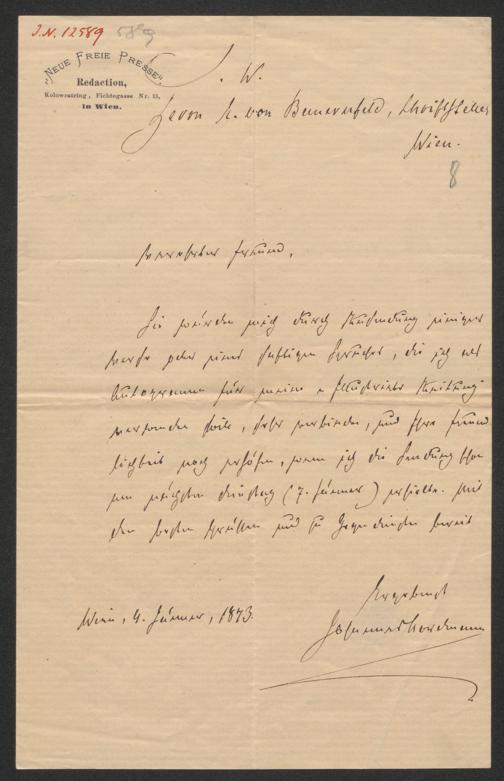 J.N. 12589
„NEUE FREIE PRESSE"
Redaction,
Kolowratring, Fichtegasse Nr. 11,
in Wien.
S. W.
Herrn E. von Bauernfeld, Schriftsteller
Wien.
8
Verehrter Freund,
Sie würden mich durch Zusendung einiger
Verse oder eines Spruches, die ich als
Autogramm für meine Illustrirte Zeitung
verwenden sehr verbinden, und Ihre Freund
lichkeit noch erhöhen, wenn ich die Sendung schon
am nächsten Dinstag (7. Jänner) erhielte. Mit
den besten Grüßen und zu Gegendiensten bereit
Ergebenst
Johannes Nordmann
Wien, 4. Jänner, 1873.